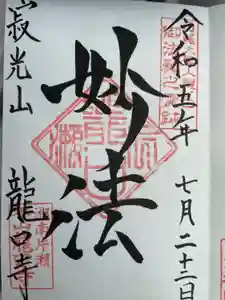 令和五年
七月二十三日
妙法
寂光山
龍口寺